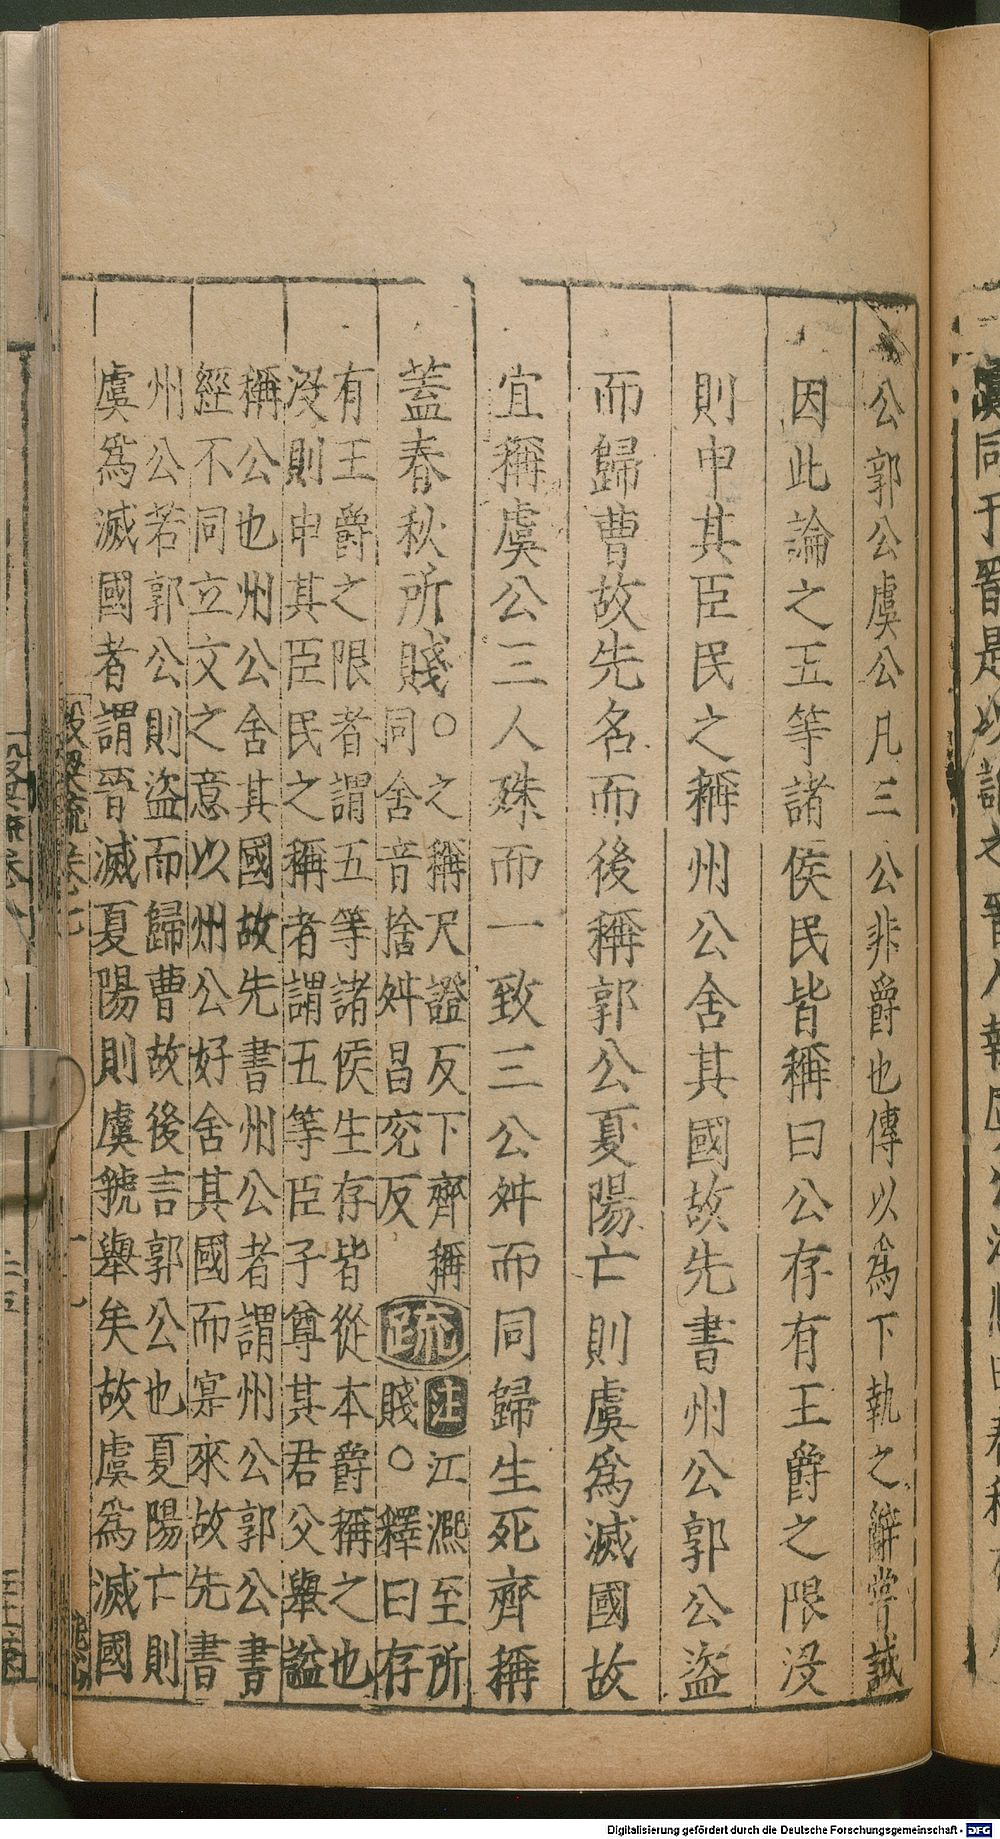 公郭公虞公凡三公非爵也傳以為下執之辭嘗試
因此論之五等諸侯民皆稱曰公存有王爵之限沒
則申其臣民之稱州公舍其國故先書州公郭公盜
而歸曹故先名而後稱郭公夏陽亡則虞爲滅國故
宜稱虞公三人殊而一致三公舛而同歸生死齊稱
蓋春秋所賤○之稱尺證反下齊稱
同舍音捨舛昌兖反
疏
注江熙至所
賤○釋曰存
有王爵之限者謂五等諸侯生存皆從本爵稱之也
沒則申其臣民之稱者謂五等臣子尊其君父舉謚
稱公也州公舍其國故先書州公者謂州公郭公書
經不同立文之意以州公好舍其國而寔來故先書
州公若郭公則盜而歸曹故後言郭公也夏陽亡則
虞爲滅國者謂晉滅夏陽則虞虢舉矣故虞爲滅國
Digitalisierung gefördert durch die Deutsche Forschungsgemeinschaft - DFG